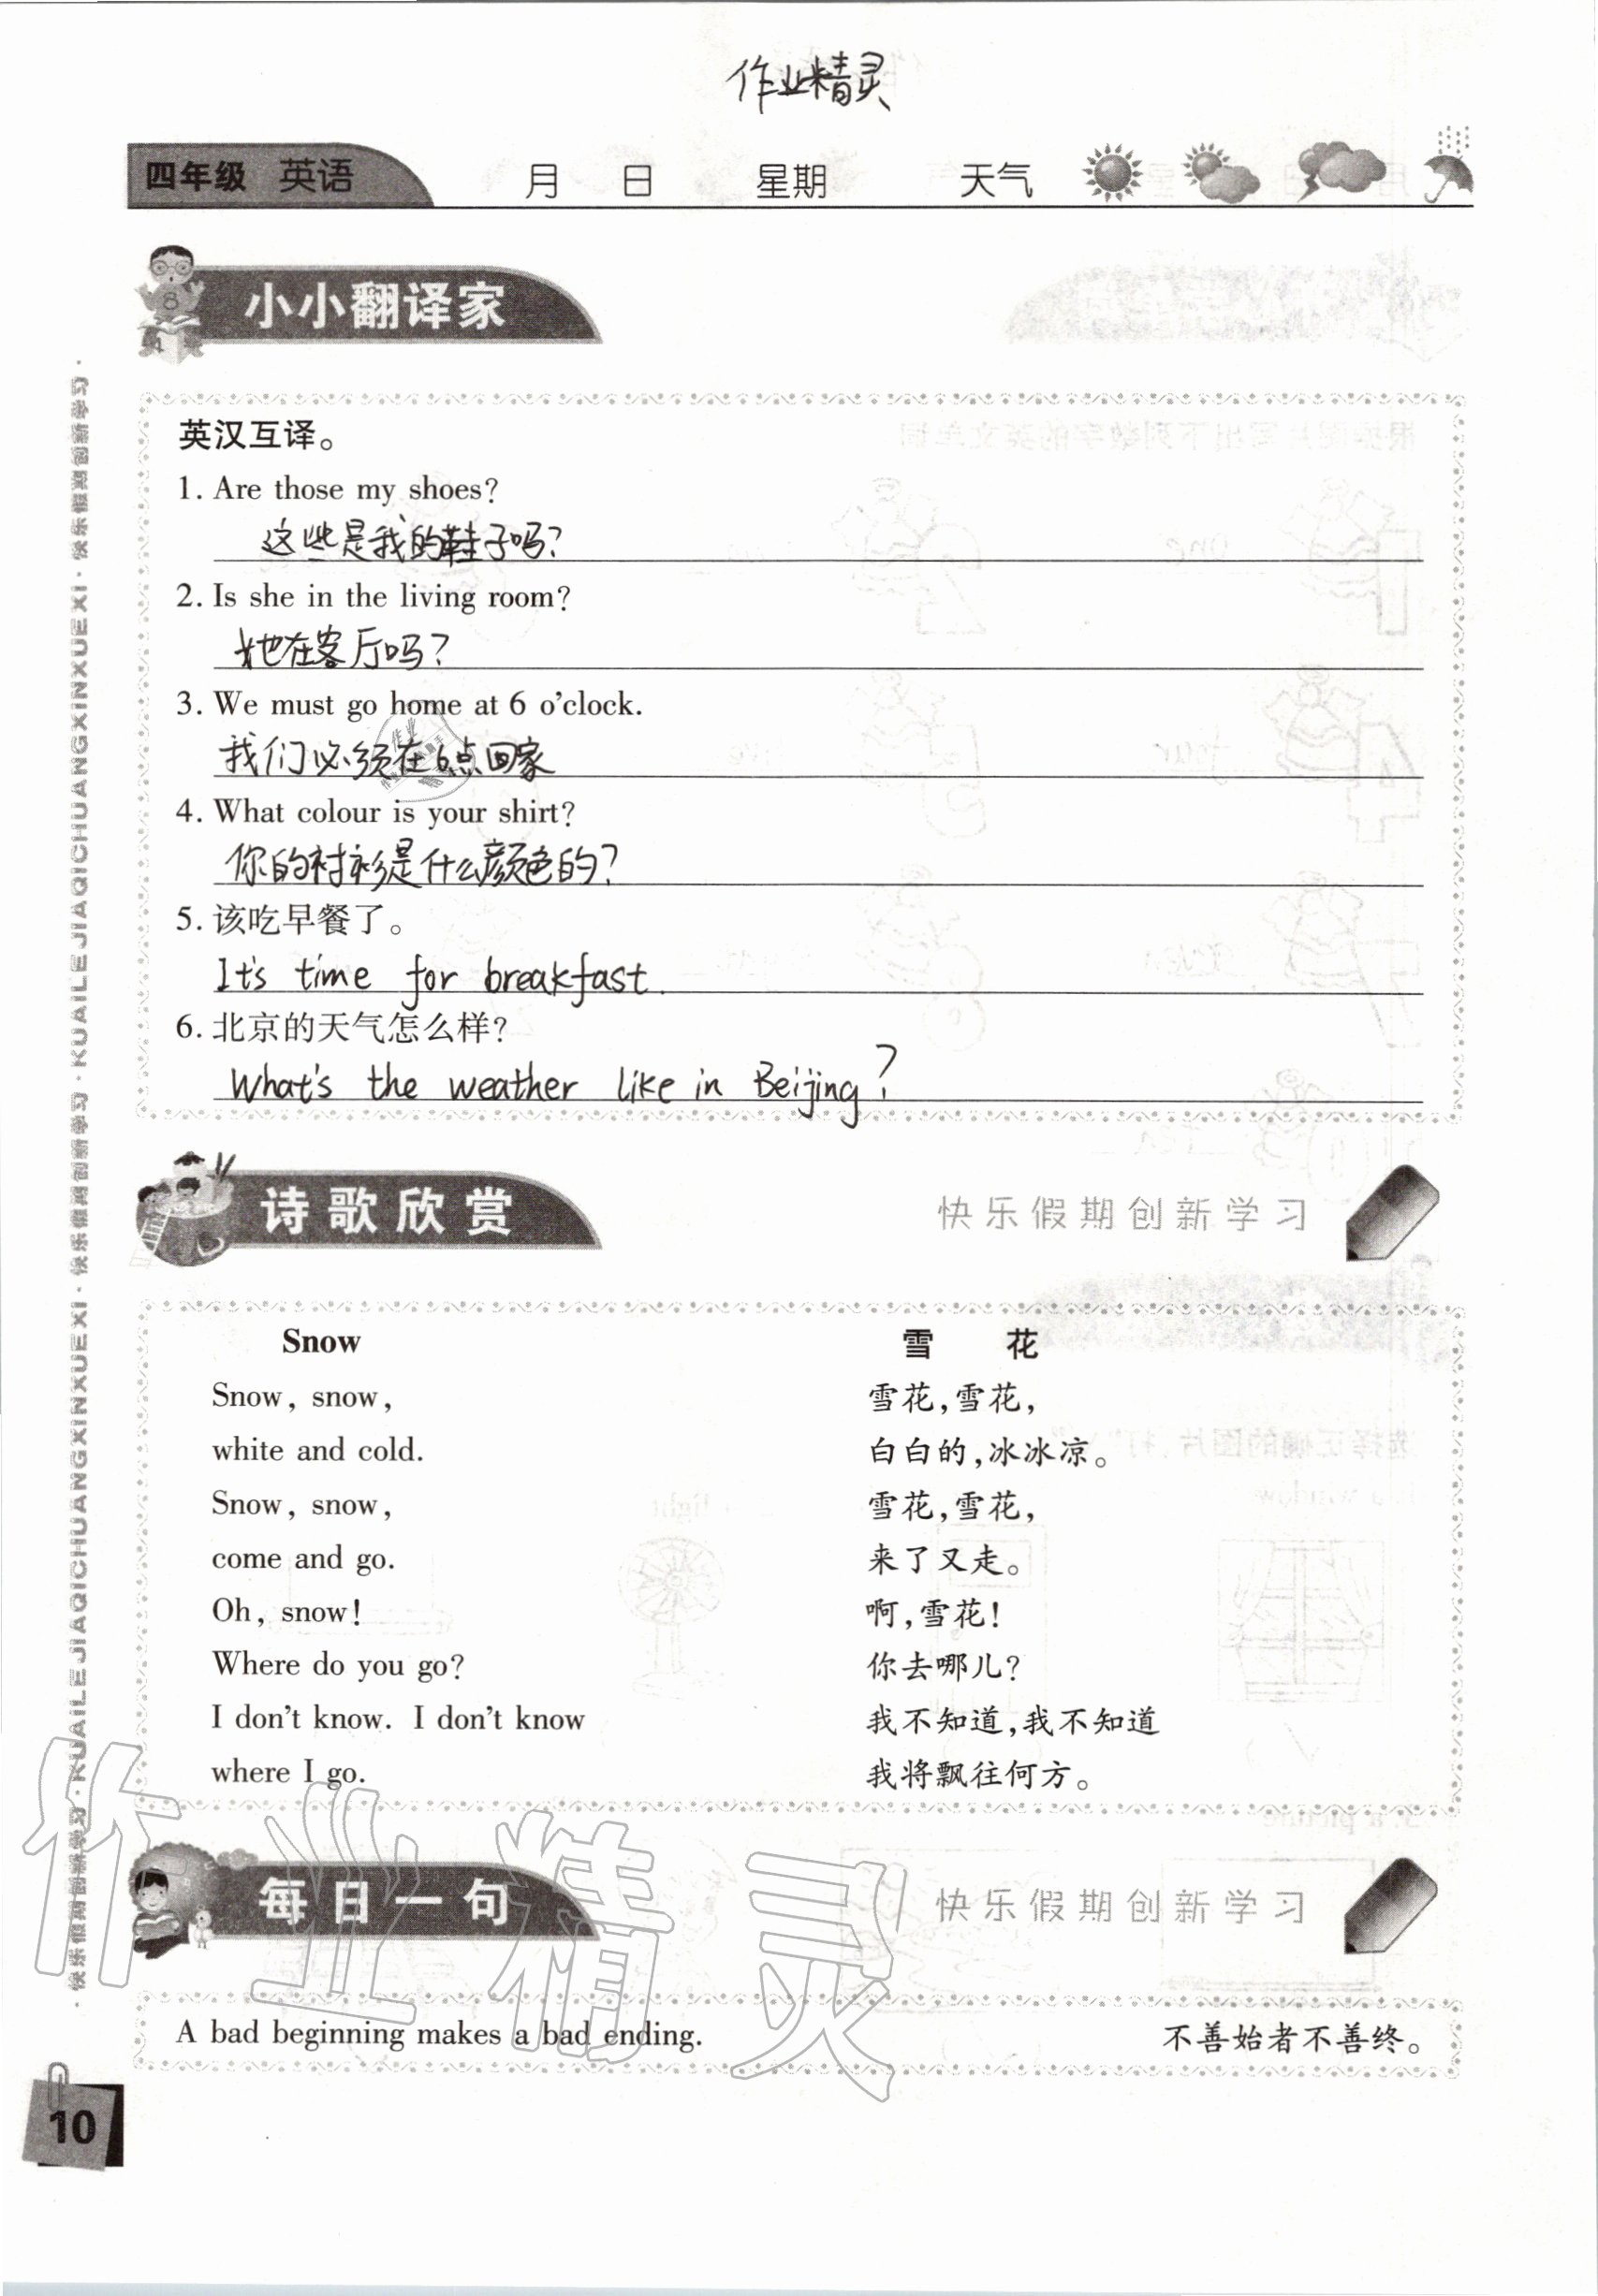 作业精灵
四年级 英语 月 日 星期 天气
小小翻译家
英汉互译。
1. Are those my shoes?
这些是我的鞋子吗?
2. Is she in the living room?
她在客厅吗?
3. We must go home at 6 o'clock.
我们必须在6点回家
4. What colour is your shirt?
你的衬衫是什么颜色的?
5. 该吃早餐了。
It's time for breakfast.
6. 北京的天气怎么样?
What's the weather like in Beijing?
诗歌欣赏 快乐假期创新学习
Snow
Snow, snow,
white and cold.
Snow, snow,
come and go.
Oh, snow!
Where do you go?
I don't know. I don't know
where I go.
雪 花
雪花,雪花,
白白的,冰冰凉。
雪花,雪花,
来了又走。
啊,雪花!
你去哪儿?
我不知道,我不知道
我将飘往何方。
每日一句 快乐假期创新学习
A bad beginning makes a bad ending. 不善始者不善终。
作业精灵
·快乐假期创新学习·KUAILEJIAQICHUANGXINXUEXI·快乐假期创新学习·KUAILEJIAQICHUANGXINXUEXI·快乐假期创新学习·
10